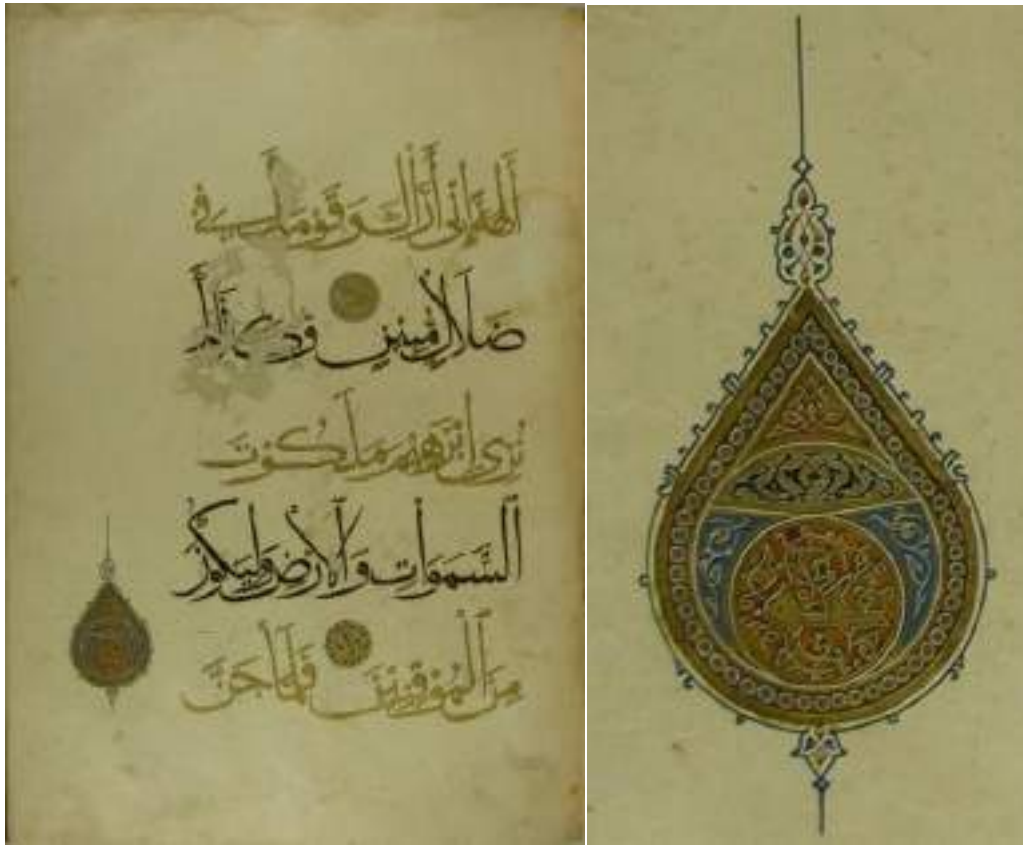 ءَالِهَةً إِنِّي أَرَاكَ وَقَوْمَكَ فِي
ضَلَالٍ مُبِينٍ وَكَذَلِكَ
نُرِي إِبْرَهِيمَ مَلَكُوتَ
السَّمَوَاتِ وَالْأَرْضِ وَلِيَكُونَ
مِنَ الْمُوقِنِينَ فَلَمَّا جَنَّ